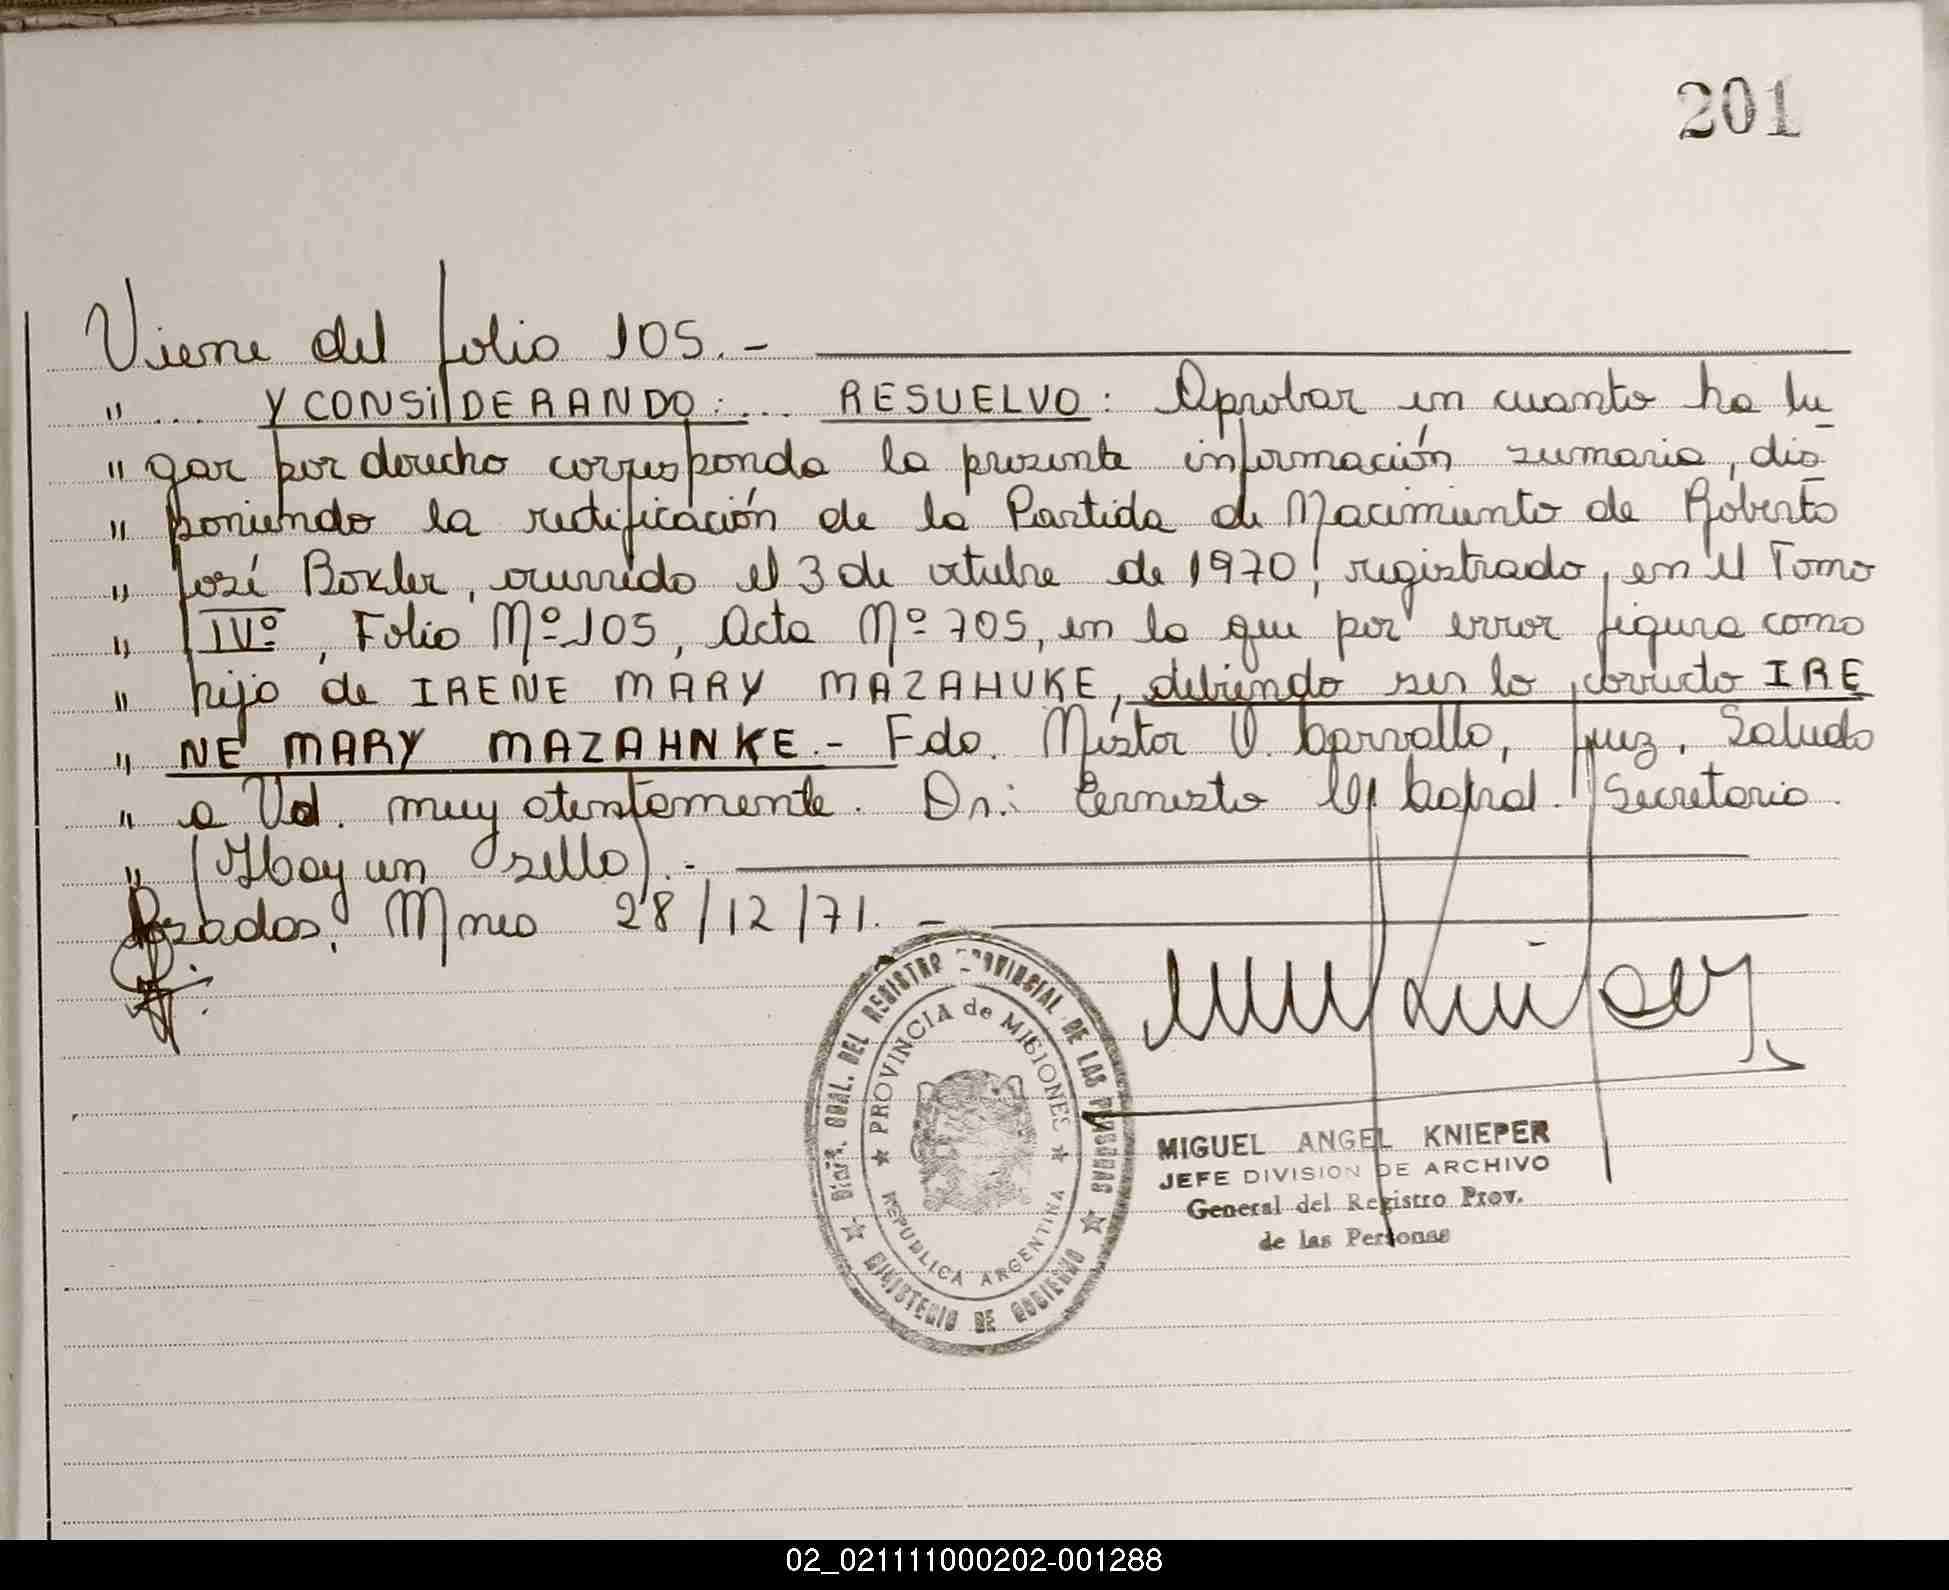 201
Viene del folio 105.-
" .... Y CONSIDERANDO:... RESUELVO: Aprobar en cuanto ha lu
" gar por derecho corresponda la presente información sumaria, dis
" poniendo la rectificación de la Partida de Nacimiento de Roberto
" José Boxler, ocurrido el 3 de octubre de 1970, registrado, en el Tomo
" IVº, Folio Nº 105, Acta Nº 705, en la que por error figura como
" hijo de IRENE MARY MAZAHUKE, debiendo ser lo correcto IRE
" NE MARY MAZAHNKE.- Fdo. Néstor O. Carvallo, Juez, Saludo
" a Ud. muy atentamente. Dr.: Ernesto Cabral. Secretario.
" (Hay un sello).-
Posadas, Mnes 28/12/71.-
DIRECC. GRAL. DEL REGISTRO PROVINCIAL DE LAS PERSONAS
PROVINCIA de MISIONES
REPUBLICA ARGENTINA
MINISTERIO DE GOBIERNO
MIGUEL ANGEL KNIEPER
JEFE DIVISION DE ARCHIVO
General del Registro Prov.
de las Personas
02_021111000202-001288